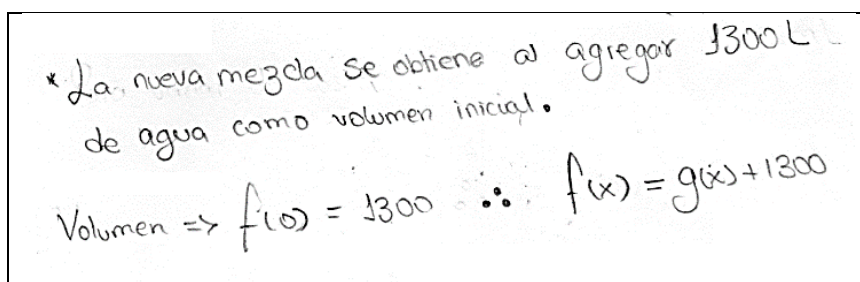 * La nueva mezcla se obtiene al agregar 1300 L
de agua como volumen inicial.
Volumen => f(0) = 1300 ∴ f(x) = g(x) + 1300